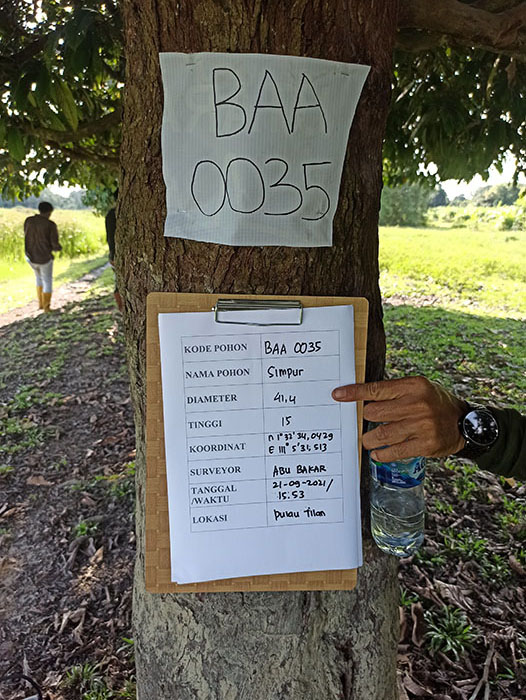 BAA
0035
KODE POHON BAA 0035
NAMA POHON Simpur
DIAMETER 41,4
TINGGI 15
KOORDINAT n 1° 32' 34, 0429
E 111° 5' 31, 513
SURVEYOR ABU BAKAR
TANGGAL /WAKTU 21-09-2021/ 15.53
LOKASI Pulau Tilan